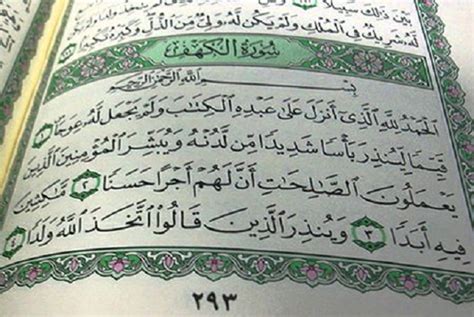 بَيْنَ ذَٰلِكَ سَبِيلًا
لَّهُۥ شَرِيكٌ فِى ٱلْمُلْكِ وَلَمْ يَكُن لَّهُۥ وَلِىٌّ مِّنَ ٱلذُّلِّ وَكَبِّرْهُ تَكْبِيرًۢا
سُورَةُ الكَهْفِ
بِسْمِ ٱللَّهِ ٱلرَّحْمَٰنِ ٱلرَّحِيمِ
ٱلْحَمْدُ لِلَّهِ ٱلَّذِىٓ أَنزَلَ عَلَىٰ عَبْدِهِ ٱلْكِتَٰبَ وَلَمْ يَجْعَل لَّهُۥ عِوَجَا ۜ ١
قَيِّمًا لِّيُنذِرَ بَأْسًا شَدِيدًا مِّن لَّدُنْهُ وَيُبَشِّرَ ٱلْمُؤْمِنِينَ ٱلَّذِينَ
يَعْمَلُونَ ٱلصَّٰلِحَٰتِ أَنَّ لَهُمْ أَجْرًا حَسَنًا ٢ مَّٰكِثِينَ
فِيهِ أَبَدًا ٣ وَيُنذِرَ ٱلَّذِينَ قَالُوا۟ ٱتَّخَذَ ٱللَّهُ وَلَدًا ٤
٢٩٣